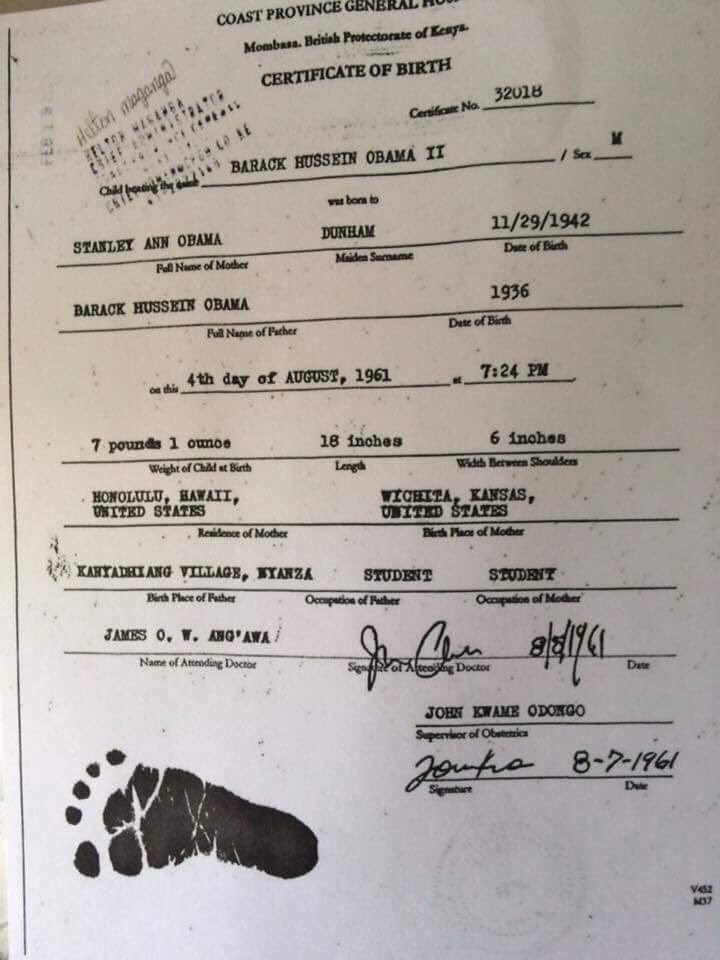 COAST PROVINCE GENERAL
Mombasa. British Protectorate of Kenya.
CERTIFICATE OF BIRTH
FEB 19
Hilton maganga
Certificate No. 32018
CHIEF ADMINISTRATOR
Child bearing the name BARACK HUSSEIN OBAMA II / Sex M
was born to
STANLEY ANN OBAMA DUNHAM 11/29/1942
Full Name of Mother Maiden Surname Date of Birth
BARACK HUSSEIN OBAMA 1936
Full Name of Father Date of Birth
on this 4th day of AUGUST, 1961 at 7:24 PM
7 pounds 1 ounce 18 inches 6 inches
Weight of Child at Birth Length Width Between Shoulders
HONOLULU, HAWAII, WICHITA, KANSAS,
UNITED STATES UNITED STATES
Residence of Mother Birth Place of Mother
KANYADHIANG VILLAGE, NYANZA STUDENT STUDENT
Birth Place of Father Occupation of Father Occupation of Mother
JAMES O. W. ANG'AWA 8/8/1961
Name of Attending Doctor Signature of Attending Doctor Date
JOHN KWAME ODONGO
Supervisor of Obstetrics
8-7-1961
Signature Date
V452
M37